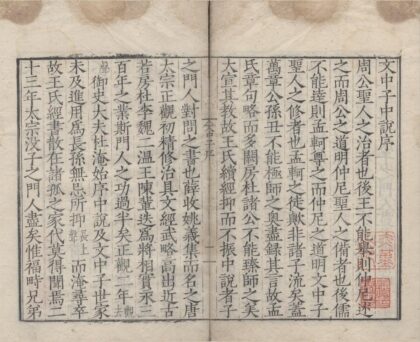 文中子中說序
周公聖人之治者也後王不能舉則仲尼述
之而周公之道明仲尼聖人之備者也後儒
不能達則孟軻尊之而仲尼之道明文中子
聖人之修者也孟軻之徒歟非諸子流矣蓋
萬章公孫丑不能極師之奧盡錄其言故孟
氏章句略而多闕房杜諸公不能臻師之美
大宣其教故王氏續經抑而不振中說者子
之門人對問之書也薛收姚義集而名之唐
太宗正觀初精修治具文經武略高出近古
若房杜李魏二溫王陳輩迭爲將相實永三
百年之業斯門人之功過半矣正觀二年
御史大夫杜淹始序中說及文中子世家
未及進用爲長孫無忌所抑而淹尋卒
故王氏經書散在諸孤之家代莫得聞焉二
十三年太宗没子之門人盡矣惟福畤兄弟